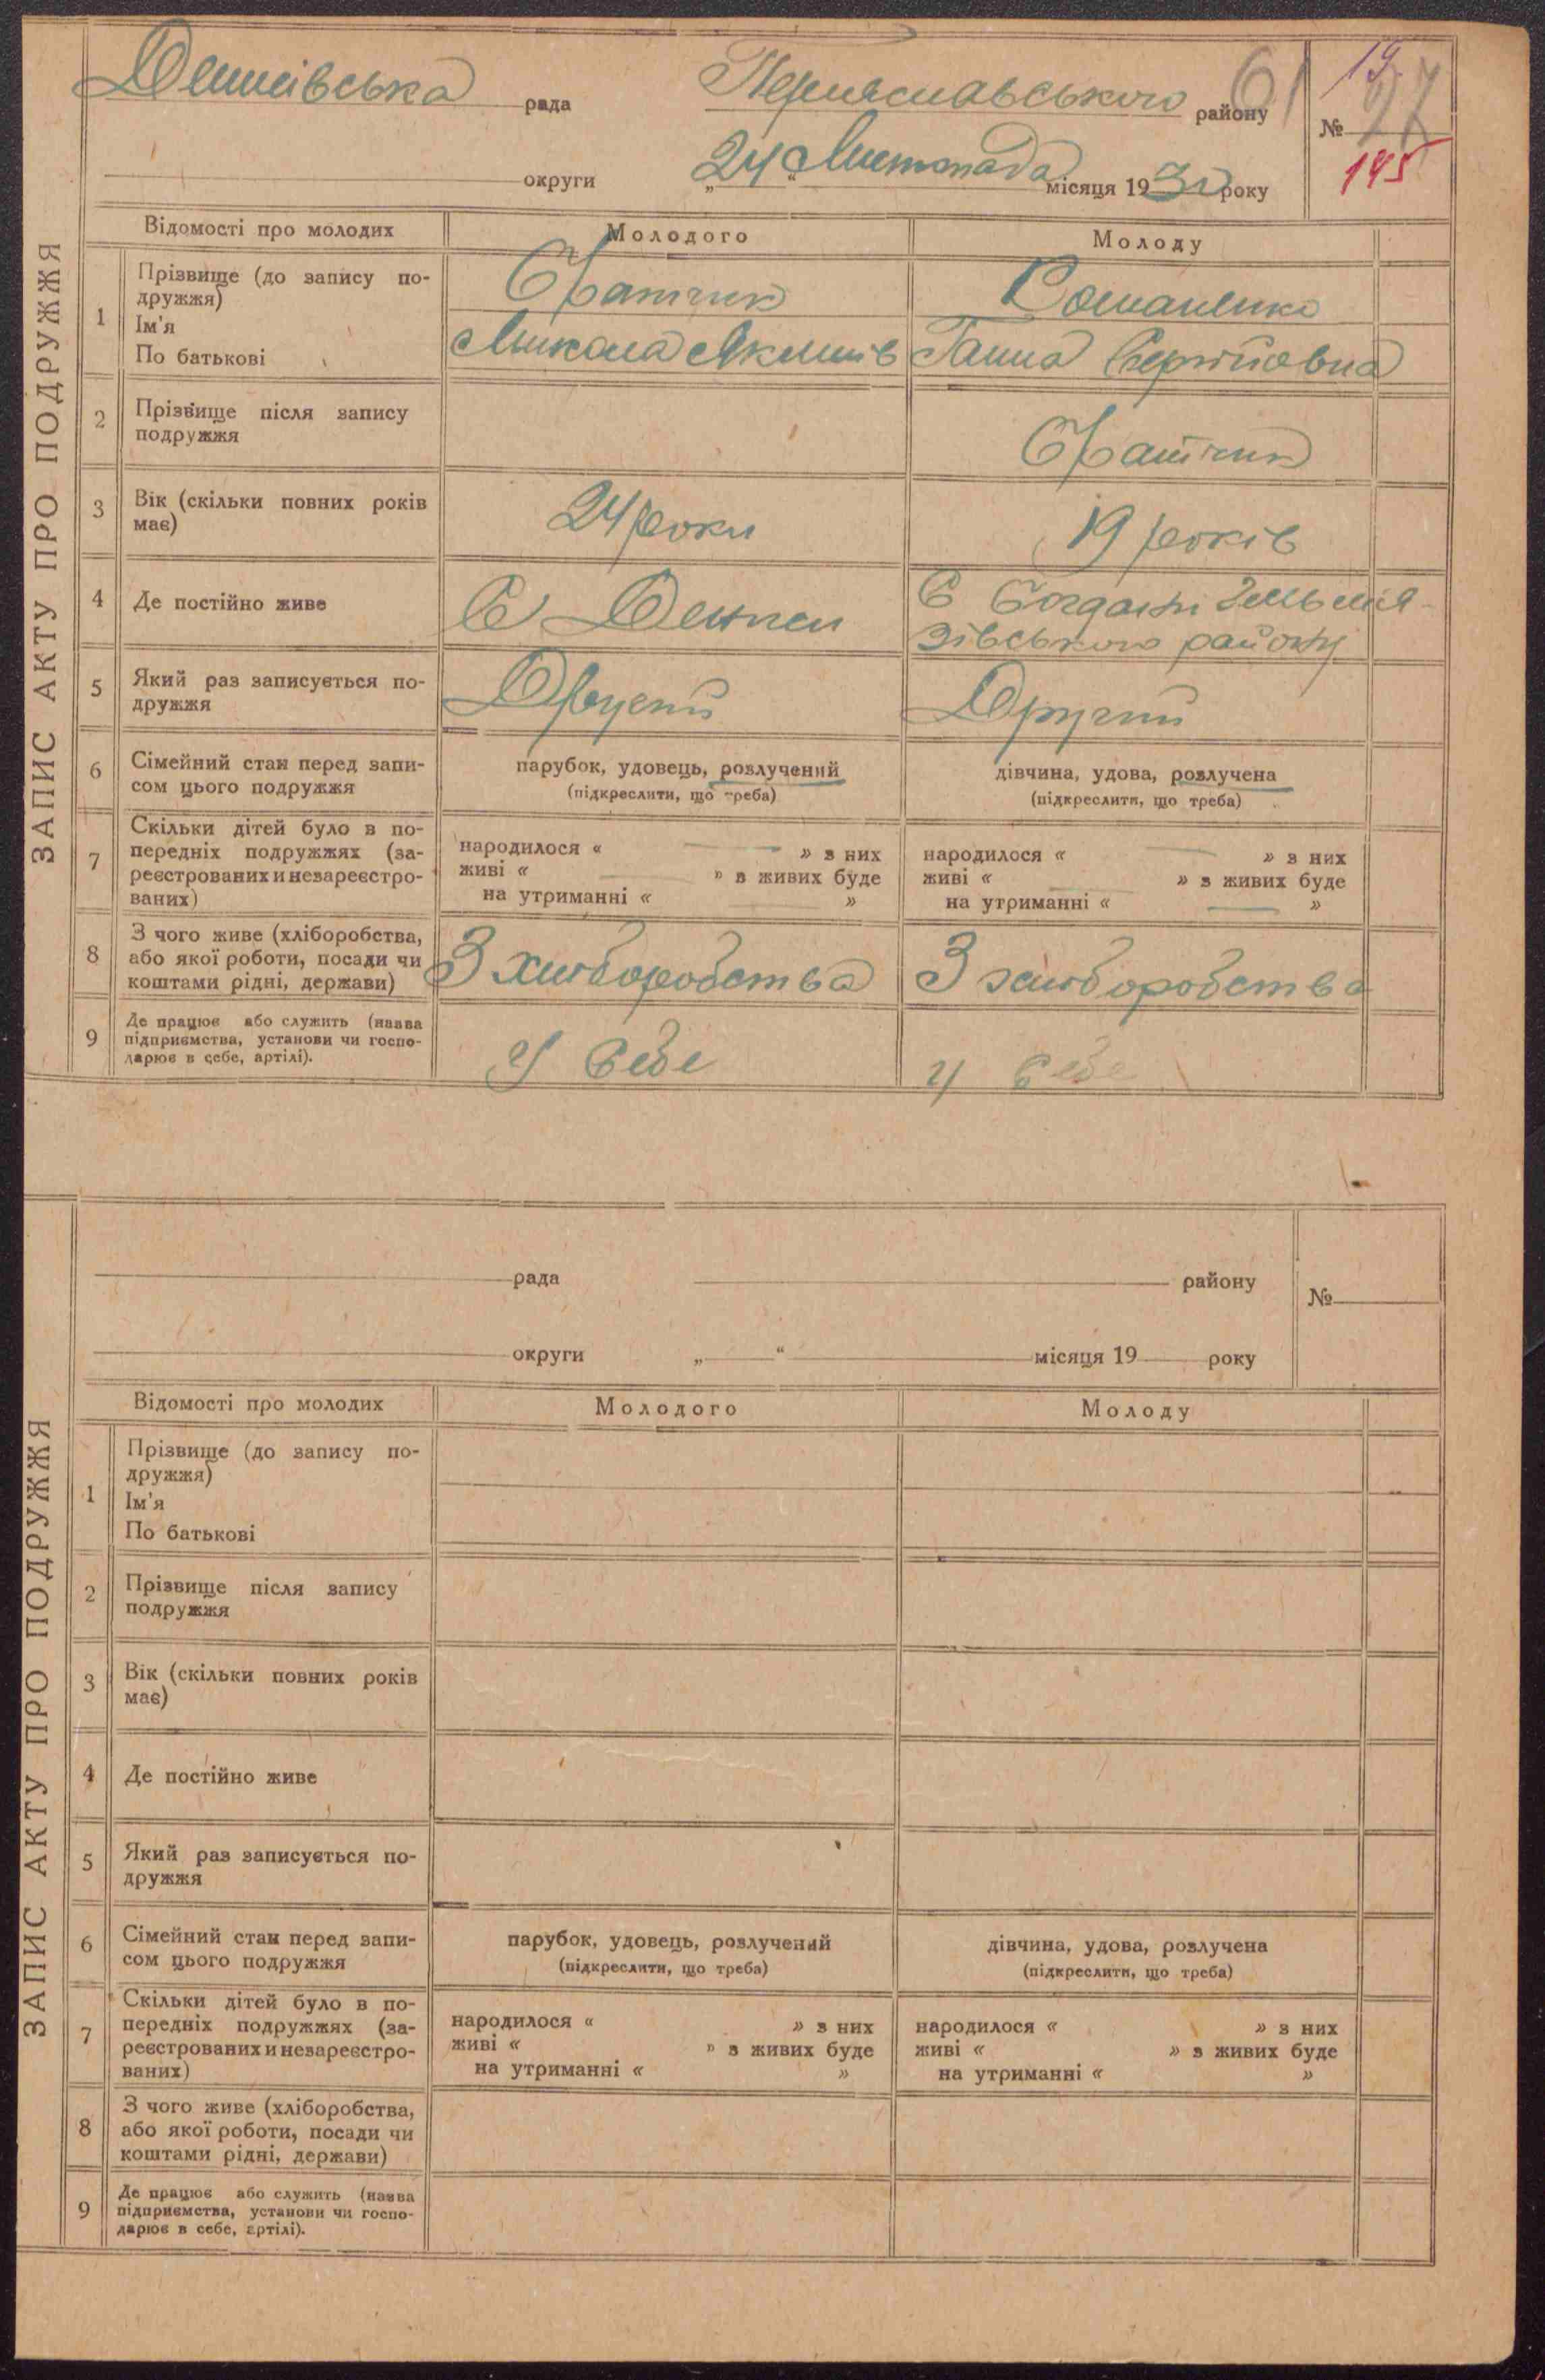 Демківська рада
Переяславського району
61
№
19
97
145
округи „24“ Листопада місяця 1930 року
ЗАПИС АКТУ ПРО ПОДРУЖЖЯ
Відомості про молодих Молодого Молоду
1 Прізвище (до запису по-
дружжя)
Ім'я
По батькові
Романенко
Микола Якимів Ганна Сергіїовна
2 Прізвище після запису
подружжя
3 Вік (скільки повних років
має)
24 роки 19 років
4 Де постійно живе
С Демки С Богдані Гельмя-
зівського району
5 Який раз записується по-
дружжя
Другий Другий
6 Сімейний стан перед запи-
сом цього подружжя
парубок, удовець, розлучений дівчина, удова, розлучена
(підкреслити, що треба) (підкреслити, що треба)
7 Скільки дітей було в по-
передніх подружжях (за-
реєстрованих и незареєстро-
ваних)
народилося « — » з них народилося « — » з них
живі « — » з живих буде живі « — » з живих буде
на утриманні « — » на утриманні « — »
8 З чого живе (хліборобства,
або якої роботи, посади чи
коштами рідні, держави)
З хліборобства З хліборобства
9 Де працює або служить (назва
підприємства, установи чи госпо-
дарює в себе, артілі).
У себе у себе
рада району
№
округи „ “ місяця 19 року
ЗАПИС АКТУ ПРО ПОДРУЖЖЯ
Відомості про молодих Молодого Молоду
1 Прізвище (до запису по-
дружжя)
Ім'я
По батькові
2 Прізвище після запису
подружжя
3 Вік (скільки повних років
має)
4 Де постійно живе
5 Який раз записується по-
дружжя
6 Сімейний стан перед запи-
сом цього подружжя
парубок, удовець, розлучений дівчина, удова, розлучена
(підкреслити, що треба) (підкреслити, що треба)
7 Скільки дітей було в по-
передніх подружжях (за-
реєстрованих и незареєстро-
ваних)
народилося « » з них народилося « » з них
живі « » з живих буде живі « » з живих буде
на утриманні « » на утриманні « »
8 З чого живе (хліборобства,
або якої роботи, посади чи
коштами рідні, держави)
9 Де працює або служить (назва
підприємства, установи чи госпо-
дарює в себе, артілі).